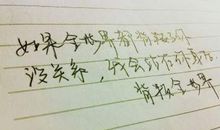 如果全世界都背叛了你
没关系,我会站在你身后,
背叛全世界